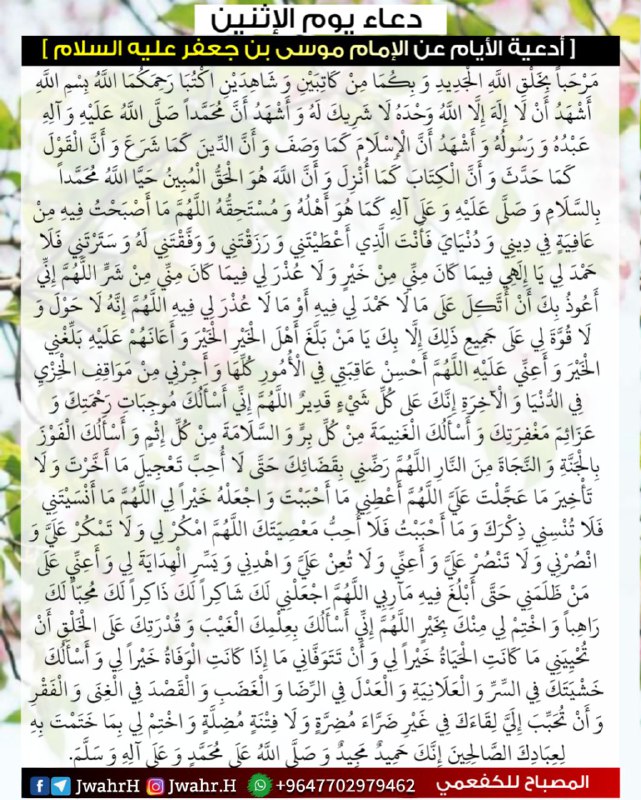 دعاء يوم الإثنين
[ أدعية الأيام عن الإمام موسى بن جعفر عليه السلام ]
مَرْحَباً بِخَلْقِ اللَّهِ الْجَدِيدِ وَ بِكُمَا مِنْ كَاتِبَيْنِ وَ شَاهِدَيْنِ اكْتُبَا رَحِمَكُمَا اللَّهُ بِسْمِ اللَّهِ
أَشْهَدُ أَنْ لَا إِلَهَ إِلَّا اللَّهُ وَحْدَهُ لَا شَرِيكَ لَهُ وَ أَشْهَدُ أَنَّ مُحَمَّداً صَلَّى اللَّهُ عَلَيْهِ وَ آلِهِ
عَبْدُهُ وَ رَسُولُهُ وَ أَشْهَدُ أَنَّ الْإِسْلَامَ كَمَا وَصَفَ وَ أَنَّ الدِّينَ كَمَا شَرَعَ وَ أَنَّ الْقَوْلَ
كَمَا حَدَّثَ وَ أَنَّ الْكِتَابَ كَمَا أُنْزِلَ وَ أَنَّ اللَّهَ هُوَ الْحَقُّ الْمُبِينُ حَيَّا اللَّهُ مُحَمَّداً
بِالسَّلَامِ وَ صَلَّى عَلَيْهِ وَ عَلَى آلِهِ كَمَا هُوَ أَهْلُهُ وَ مُسْتَحِقُّهُ اللَّهُمَّ مَا أَصْبَحْتُ فِيهِ مِنْ
عَافِيَةٍ فِي دِينِي وَ دُنْيَايَ فَأَنْتَ الَّذِي أَعْطَيْتَنِي وَ رَزَقْتَنِي وَ وَفَّقْتَنِي لَهُ وَ سَتَرْتَنِي فَلَا
حَمْدَ لِي يَا إِلَهِي فِيمَا كَانَ مِنِّي مِنْ خَيْرٍ وَ لَا عُذْرَ لِي فِيمَا كَانَ مِنِّي مِنْ شَرٍّ اللَّهُمَّ إِنِّي
أَعُوذُ بِكَ أَنْ أَتَّكِلَ عَلَى مَا لَا حَمْدَ لِي فِيهِ أَوْ مَا لَا عُذْرَ لِي فِيهِ اللَّهُمَّ إِنَّهُ لَا حَوْلَ وَ
لَا قُوَّةَ لِي عَلَى جَمِيعِ ذَلِكَ إِلَّا بِكَ يَا مَنْ بَلَّغَ أَهْلَ الْخَيْرِ الْخَيْرَ وَ أَعَانَهُمْ عَلَيْهِ بَلِّغْنِي
الْخَيْرَ وَ أَعِنِّي عَلَيْهِ اللَّهُمَّ أَحْسِنْ عَاقِبَتِي فِي الْأُمُورِ كُلِّهَا وَ أَجِرْنِي مِنْ مَوَاقِفِ الْخِزْيِ
فِي الدُّنْيَا وَ الْآخِرَةِ إِنَّكَ عَلَى كُلِّ شَيْءٍ قَدِيرٌ اللَّهُمَّ إِنِّي أَسْأَلُكَ مُوجِبَاتِ رَحْمَتِكَ وَ
عَزَائِمَ مَغْفِرَتِكَ وَ أَسْأَلُكَ الْغَنِيمَةَ مِنْ كُلِّ بِرٍّ وَ السَّلَامَةَ مِنْ كُلِّ إِثْمٍ وَ أَسْأَلُكَ الْفَوْزَ
بِالْجَنَّةِ وَ النَّجَاةَ مِنَ النَّارِ اللَّهُمَّ رَضِّنِي بِقَضَائِكَ حَتَّى لَا أُحِبَّ تَعْجِيلَ مَا أَخَّرْتَ وَ لَا
تَأْخِيرَ مَا عَجَّلْتَ عَلَيَّ اللَّهُمَّ أَعْطِنِي مَا أَحْبَبْتَ وَ اجْعَلْهُ خَيْراً لِي اللَّهُمَّ مَا أَنْسَيْتَنِي
فَلَا تُنْسِنِي ذِكْرَكَ وَ مَا أَحْبَبْتُ فَلَا أُحِبُّ مَعْصِيَتَكَ اللَّهُمَّ امْكُرْ لِي وَ لَا تَمْكُرْ عَلَيَّ وَ
انْصُرْنِي وَ لَا تَنْصُرْ عَلَيَّ وَ أَعِنِّي وَ لَا تُعِنْ عَلَيَّ وَ اهْدِنِي وَ يَسِّرِ الْهِدَايَةَ لِي وَ أَعِنِّي عَلَى
مَنْ ظَلَمَنِي حَتَّى أَبْلُغَ فِيهِ مَآرِبِي اللَّهُمَّ اجْعَلْنِي لَكَ شَاكِراً لَكَ ذَاكِراً لَكَ مُحِبّاً لَكَ
رَاهِباً وَ اخْتِمْ لِي مِنْكَ بِخَيْرٍ اللَّهُمَّ إِنِّي أَسْأَلُكَ بِعِلْمِكَ الْغَيْبَ وَ قُدْرَتِكَ عَلَى الْخَلْقِ أَنْ
تُحْيِيَنِي مَا كَانَتِ الْحَيَاةُ خَيْراً لِي وَ أَنْ تَتَوَفَّانِي مَا إِذَا كَانَتِ الْوَفَاةُ خَيْراً لِي وَ أَسْأَلُكَ
خَشْيَتَكَ فِي السِّرِّ وَ الْعَلَانِيَةِ وَ الْعَدْلَ فِي الرِّضَا وَ الْغَضَبِ وَ الْقَصْدَ فِي الْغِنَى وَ الْفَقْرِ
وَ أَنْ تُحَبِّبَ إِلَيَّ لِقَاءَكَ فِي غَيْرِ ضَرَّاءَ مُضِرَّةٍ وَ لَا فِتْنَةٍ مُضِلَّةٍ وَ اخْتِمْ لِي بِمَا خَتَمْتَ بِهِ
لِعِبَادِكَ الصَّالِحِينَ إِنَّكَ حَمِيدٌ مَجِيدٌ وَ صَلَّى اللَّهُ عَلَى مُحَمَّدٍ وَ عَلَى آلِهِ وَ سَلَّمَ.
المصباح للكفعمي
JwahrH Jwahr.H +9647702979462